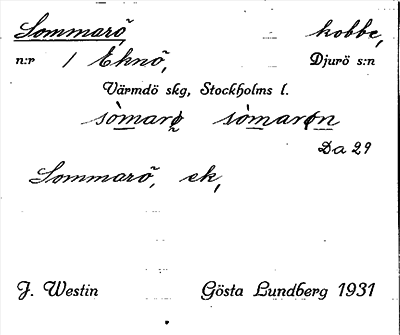 Sommarö, kobbe,
n:r 1 Eknö, Djurö s:n
Värmdö skg, Stockholms l.
sòmarö sòmarön
Da 29
Sommarö, ek,
J. Westin Gösta Lundberg 1931